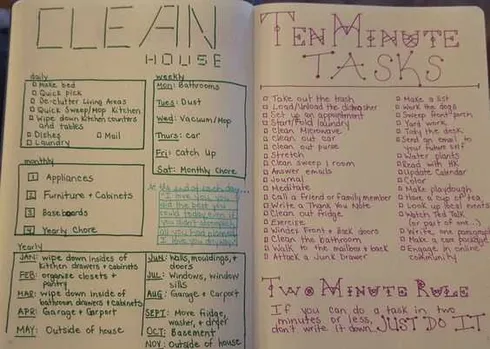 CLEAN
HOUSE
daily
Make bed
Quick pick
De-clutter Living Areas
Quick Sweep/Mop Kitchen
Wipe down kitchen counters
and tables
Dishes
Mail
Laundry
weekly
Mon: Bathrooms
Tues: Dust
Wed: Vacuum/Mop
Thurs: car
Fri: Catch Up
Sat: Monthly Chore
monthly
1 Appliances
2 Furniture + Cabinets
3 Baseboards
4 Yearly Chore
At the end of each day...
I love you, you
did the best you
could today, even if
you didn't
all you had planned
I love you anyway
Yearly
JAN: wipe down insides of
kitchen drawers + cabinets
FEB: organize closets +
pantry
MAR: wipe down inside of
bathroom drawers + cabinets
APR: Garage + Carport
MAY: Outside of house
JUN: Walls, mouldings, +
doors
JUL: Windows, window
sills
AUG: Garage + Carport
SEPT: Move fridge,
washer, + dryer
OCT: Basement
NOV: Outside of house
TEN MINUTE
TASKS
Take out the trash
Load/Unload the dishwasher
Set up an appointment
Start/Fold laundry
Clean Microwave
Clean out car
clean out purse
Stretch
Clean sweep 1 room
Answer emails
Journal
Meditate
Call a friend or family member
Write a Thank You Note
Clean out fridge
Exercise
Windex Front + Back doors
Clean the bathroom
Walk to the mailbox + back
Attack a Junk Drawer
Make a list
Walk the dogs
Sweep front porch
Yard work
Tidy the desk
Send an email to
your future self
Water plants
Read with HK
Update Calendar
Color
Make playdough
Have a cup of tea
Look up local events
Watch Ted Talk
(or part of one...)
Write one paragraph
Make a
Engage in online
community
TWO MINUTE RULE
If you can do a task in two
minutes or less,
don't write it down. JUST DO IT